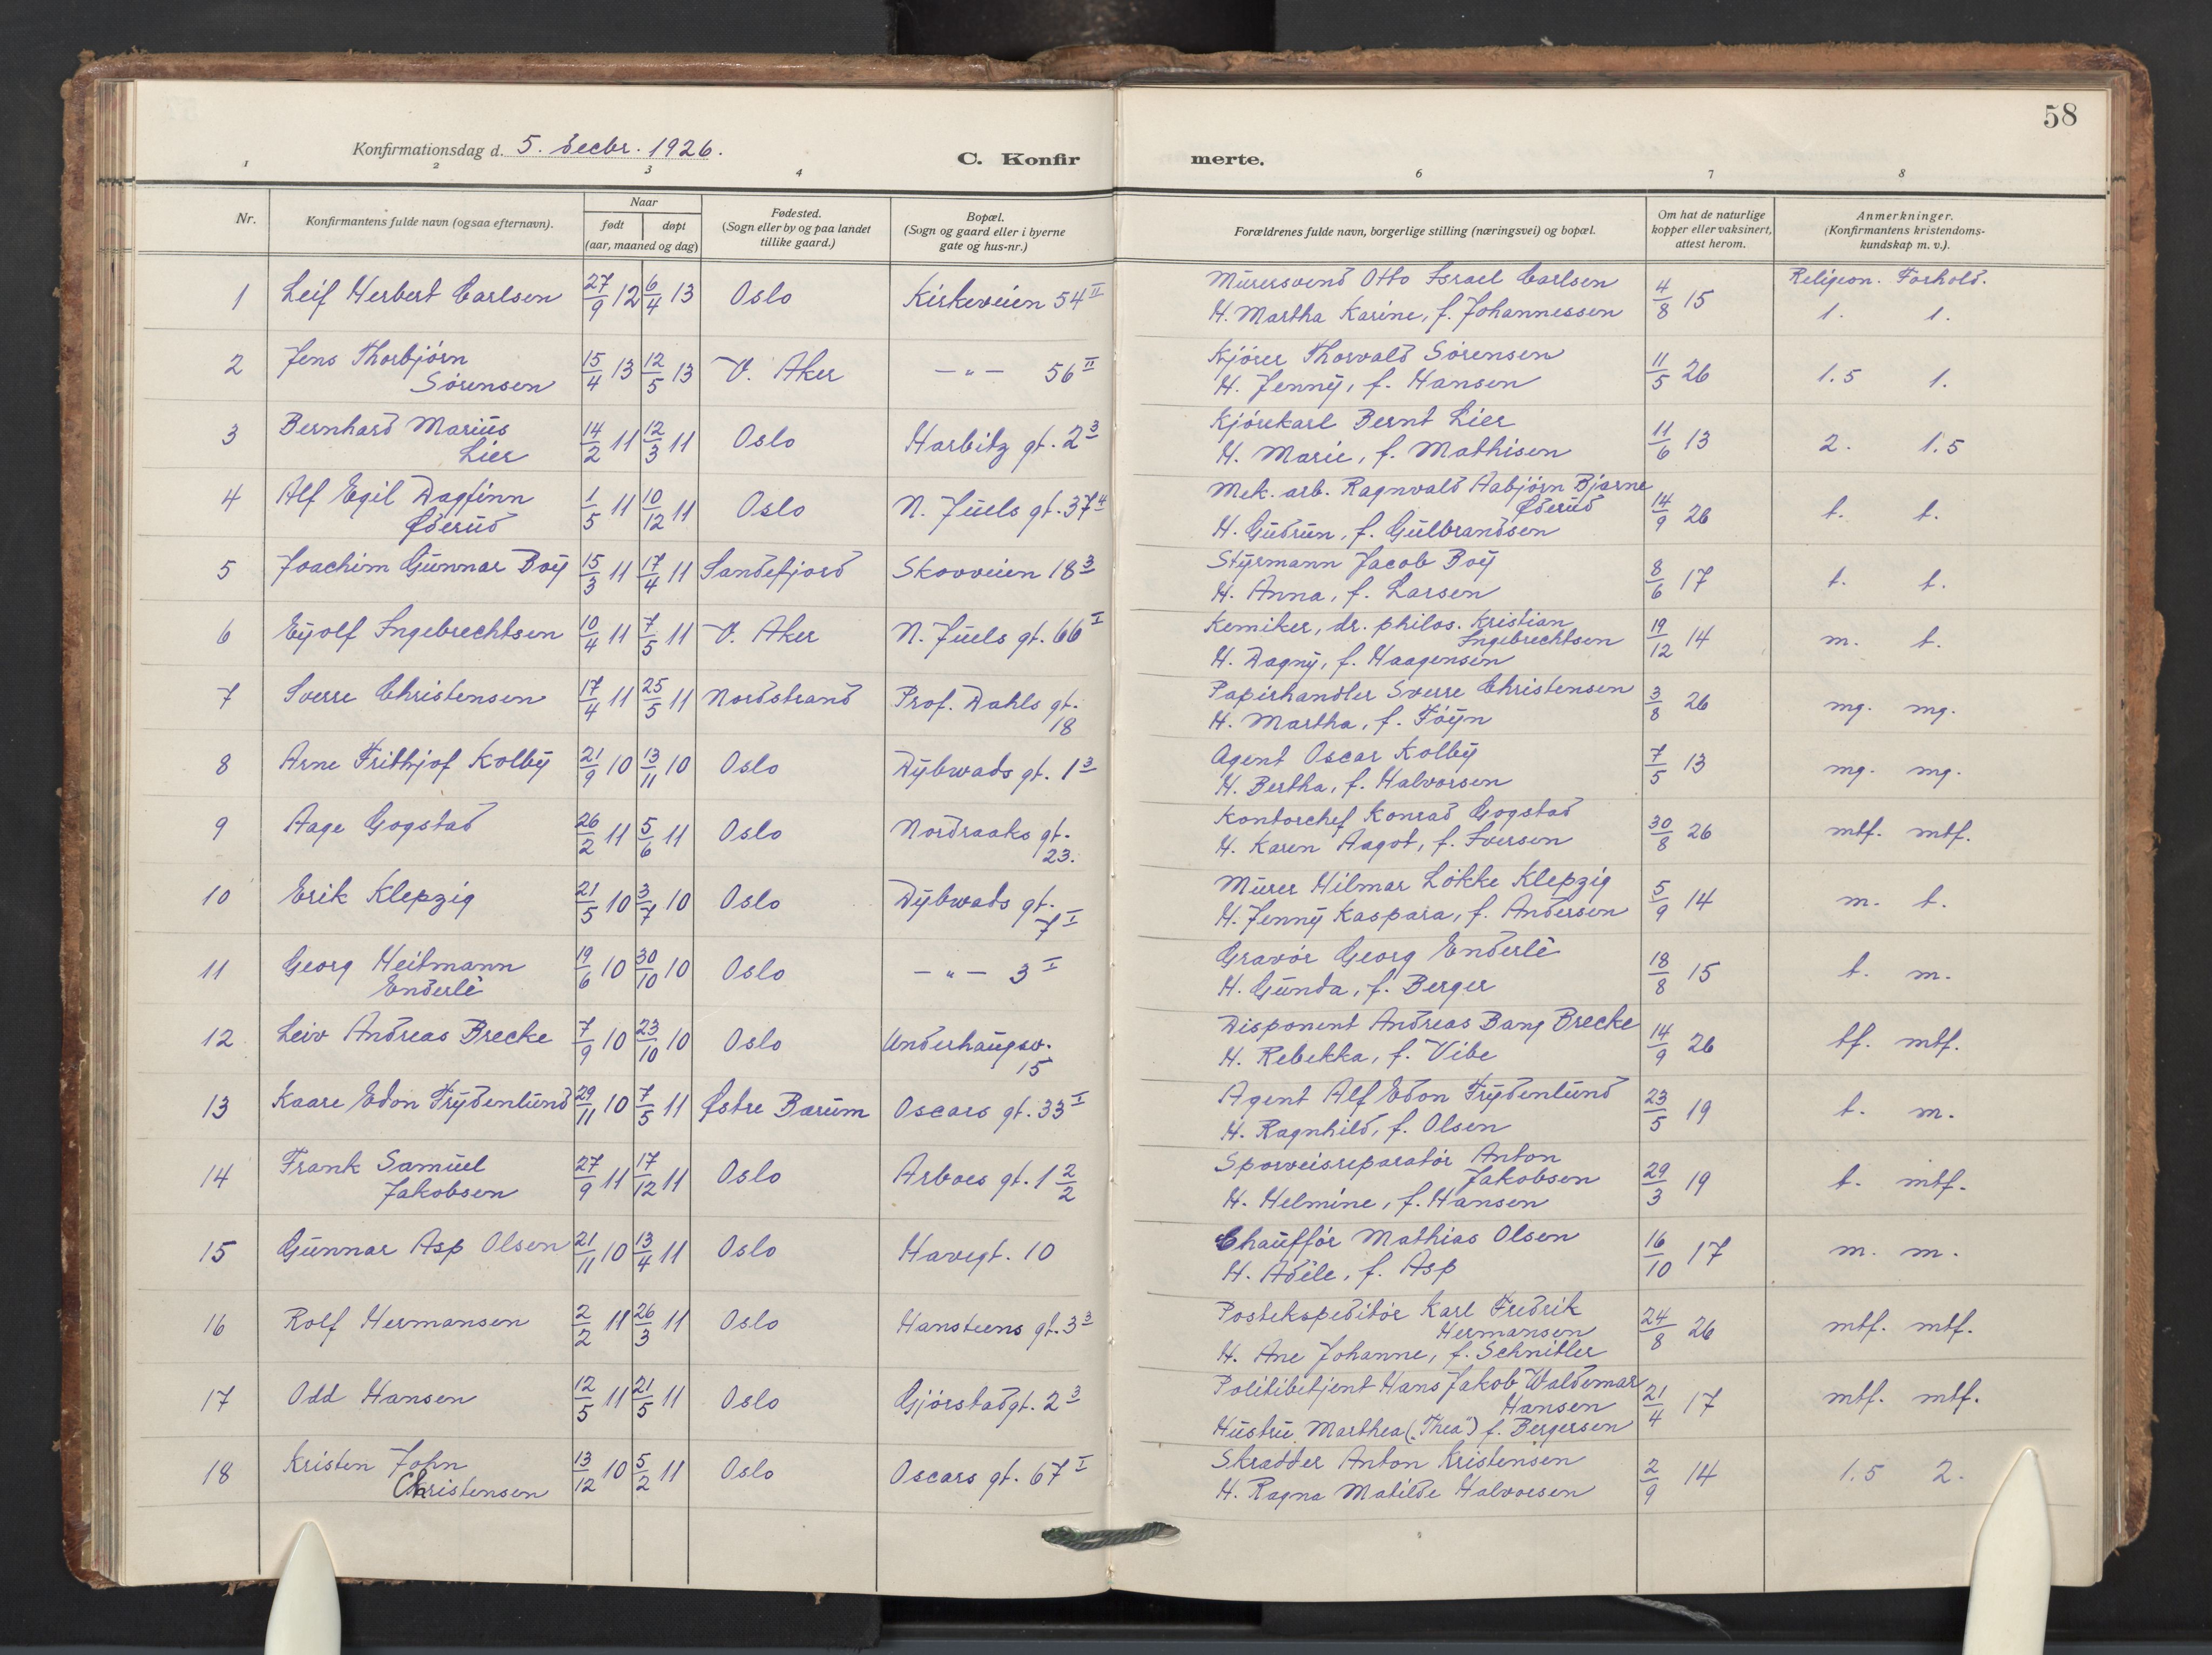 58
Konfirmationsdag d. 5. decbr. 1926.
C. Konfirmerte.
1 2 3 4 6 7 8
Nr.
Konfirmantens fulde navn (ogsaa efternavn).
Naar
født døpt
(aar, maaned og dag)
Fødested.
(Sogn eller by og paa landet
tillike gaard.)
Bopæl.
(Sogn og gaard eller i byerne
gate og hus-nr.)
Forældrenes fulde navn, borgerlige stilling (næringsvei) og bopæl.
Om hat de naturlige
kopper eller vaksinert,
attest herom.
Anmerkninger.
(Konfirmantens kristendoms-
kundskap m. v.).
Religion. Forhold.
1 Leif Herbert Carlsen 27/9 12 6/4 13 Oslo Kirkeveien 54 II Murersvend Otto Israel Carlsen 4/8 15 1. 1.
H. Martha Karine, f. Johannessen
2 Jens Thorbjørn 15/4 13 12/5 13 V. Aker -"- 56 II Kjører Thorvald Sørensen 11/5 26 1.5 1.
Sørensen H. Jenny, f. Hansen
3 Bernhard Marius 14/2 11 12/3 11 Oslo Harbitz gt. 2 3 Kjørekarl Bernt Lier 11/6 13 2. 1.5
Lier H. Marie, f. Mathisen
4 Alf Egil Dagfinn 1/5 11 10/12 11 Oslo N. Juels gt. 37 4 Mek. arb. Ragnvald Aabjørn Bjarne 14/9 26 t. t.
Øderud Øderud
H. Gudrun, f. Gulbrandsen
5 Joachim Gunnar Boy 15/3 11 17/4 11 Sandefjord Skovveien 18 3 Styrmann Jacob Boy 8/6 17 t. t.
H. Anna, f. Larsen
6 Eyolf Ingebrechtsen 10/4 11 7/5 11 V. Aker N. Juels gt. 66 I Kemiker, dr. philos. Kristian 19/12 14 m. t.
Ingebrechtsen
H. Dagny, f. Haagensen
7 Sverre Christensen 17/4 11 25/5 11 Nordstrand Prof. Dahls gt. Papirhandler Sverre Christensen 3/8 26 mg. mg.
18 H. Martha, f. Føyn
8 Arne Frithjof Kolby 21/9 10 13/11 10 Oslo Dybwads gt. 1 3 Agent Oscar Kolby 7/5 13 mg. mg.
H. Bertha, f. Halvorsen
9 Aage Gogstad 26/2 11 5/6 11 Oslo Nordraaks gt. Kontorchef Konrad Gogstad 30/8 26 mtf. mtf.
23. H. Karen Aagot, f. Iversen
10 Erik Klepzig 21/5 10 3/7 10 Oslo Dybwads gt. Murer Hilmar Løkke Klepzig 5/9 14 m. t.
7 I H. Jenny Kaspara, f. Andersen
11 Georg Heitmann 19/6 10 30/10 10 Oslo -"- 3 I Gravør Georg Enderlè 18/8 15 t. m.
Enderlè H. Gunda, f. Berger
12 Leiv Andreas Brecke 7/9 10 23/10 10 Oslo Underhaugsv. Disponent Andreas Bang Brecke 14/9 26 tf. mtf.
15 H. Rebekka, f. Vibe
13 Kaare Edon Frydenlund 29/11 10 7/5 11 Østre Bærum Oscars gt. 33 I Agent Alf Edon Frydenlund 23/5 19 t. m.
H. Ragnhild, f. Olsen
14 Frank Samuel 27/9 11 17/12 11 Oslo Arboes gt. 1 2/2 Sporveisreparatør Anton 29/3 19 t. mtf.
Jakobsen Jakobsen
H. Helmine, f. Hansen
15 Gunnar Asp Olsen 21/11 10 13/4 11 Oslo Havegt. 10 Chauffør Mathias Olsen 16/10 17 m. m.
H. Adèle, f. Asp
16 Rolf Hermansen 2/2 11 26/3 11 Oslo Hansteens gt. 3 3 Postekspeditør Karl Fredrik 24/8 26 mtf. mtf.
Hermansen
H. Ane Johanne, f. Schnitler
17 Odd Hansen 12/5 11 21/5 11 Oslo Gjørstadgt. 2 3 Politibetjent Hans Jakob Waldemar 21/4 17 mtf. mtf.
Hansen
Hustru Marthea („Thea") f. Bergersen
18 Kristen John 13/12 10 5/2 11 Oslo Oscars gt. 67 I Skrædder Anton Kristensen 2/9 14 1.5 2.
Christensen H. Ragna Matilde Halvorsen